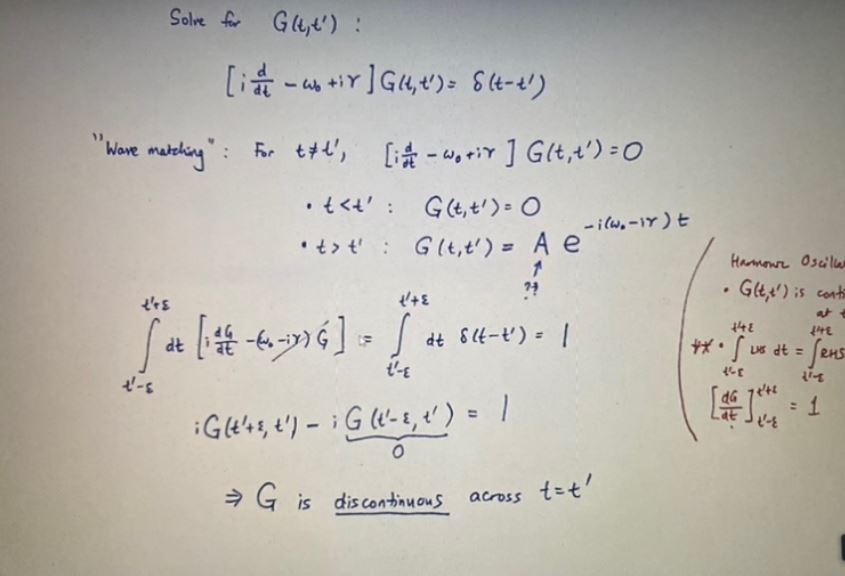 Solve for G(t,t') :
[i d/dt - ω₀ + iγ] G(t,t') = δ(t-t')
"Wave matching" : For t≠t', [i d/dt - ω₀ + iγ] G(t,t') = 0
• t<t' : G(t,t') = 0
• t>t' : G(t,t') = A e^{-i(ω₀-iγ)t}
↑
??
∫_{t'-ε}^{t'+ε} dt [i dG/dt - (ω₀-iγ) G] = ∫_{t'-ε}^{t'+ε} dt δ(t-t') = 1
iG(t'+ε, t') - iG(t'-ε, t') = 1
0
⇒ G is discontinuous across t=t'
Harmonic Oscilla
• G(t,t') is conti
at t
• ∫_{t'-ε}^{t'+ε} LHS dt = ∫_{t'-ε}^{t'+ε} RHS
[dG/dt]_{t'-ε}^{t'+ε} = 1